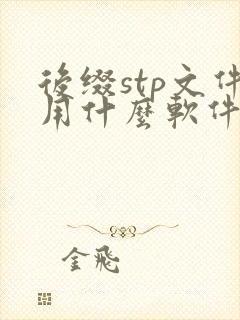 後缀stp文件
用什麼軟件
金飛